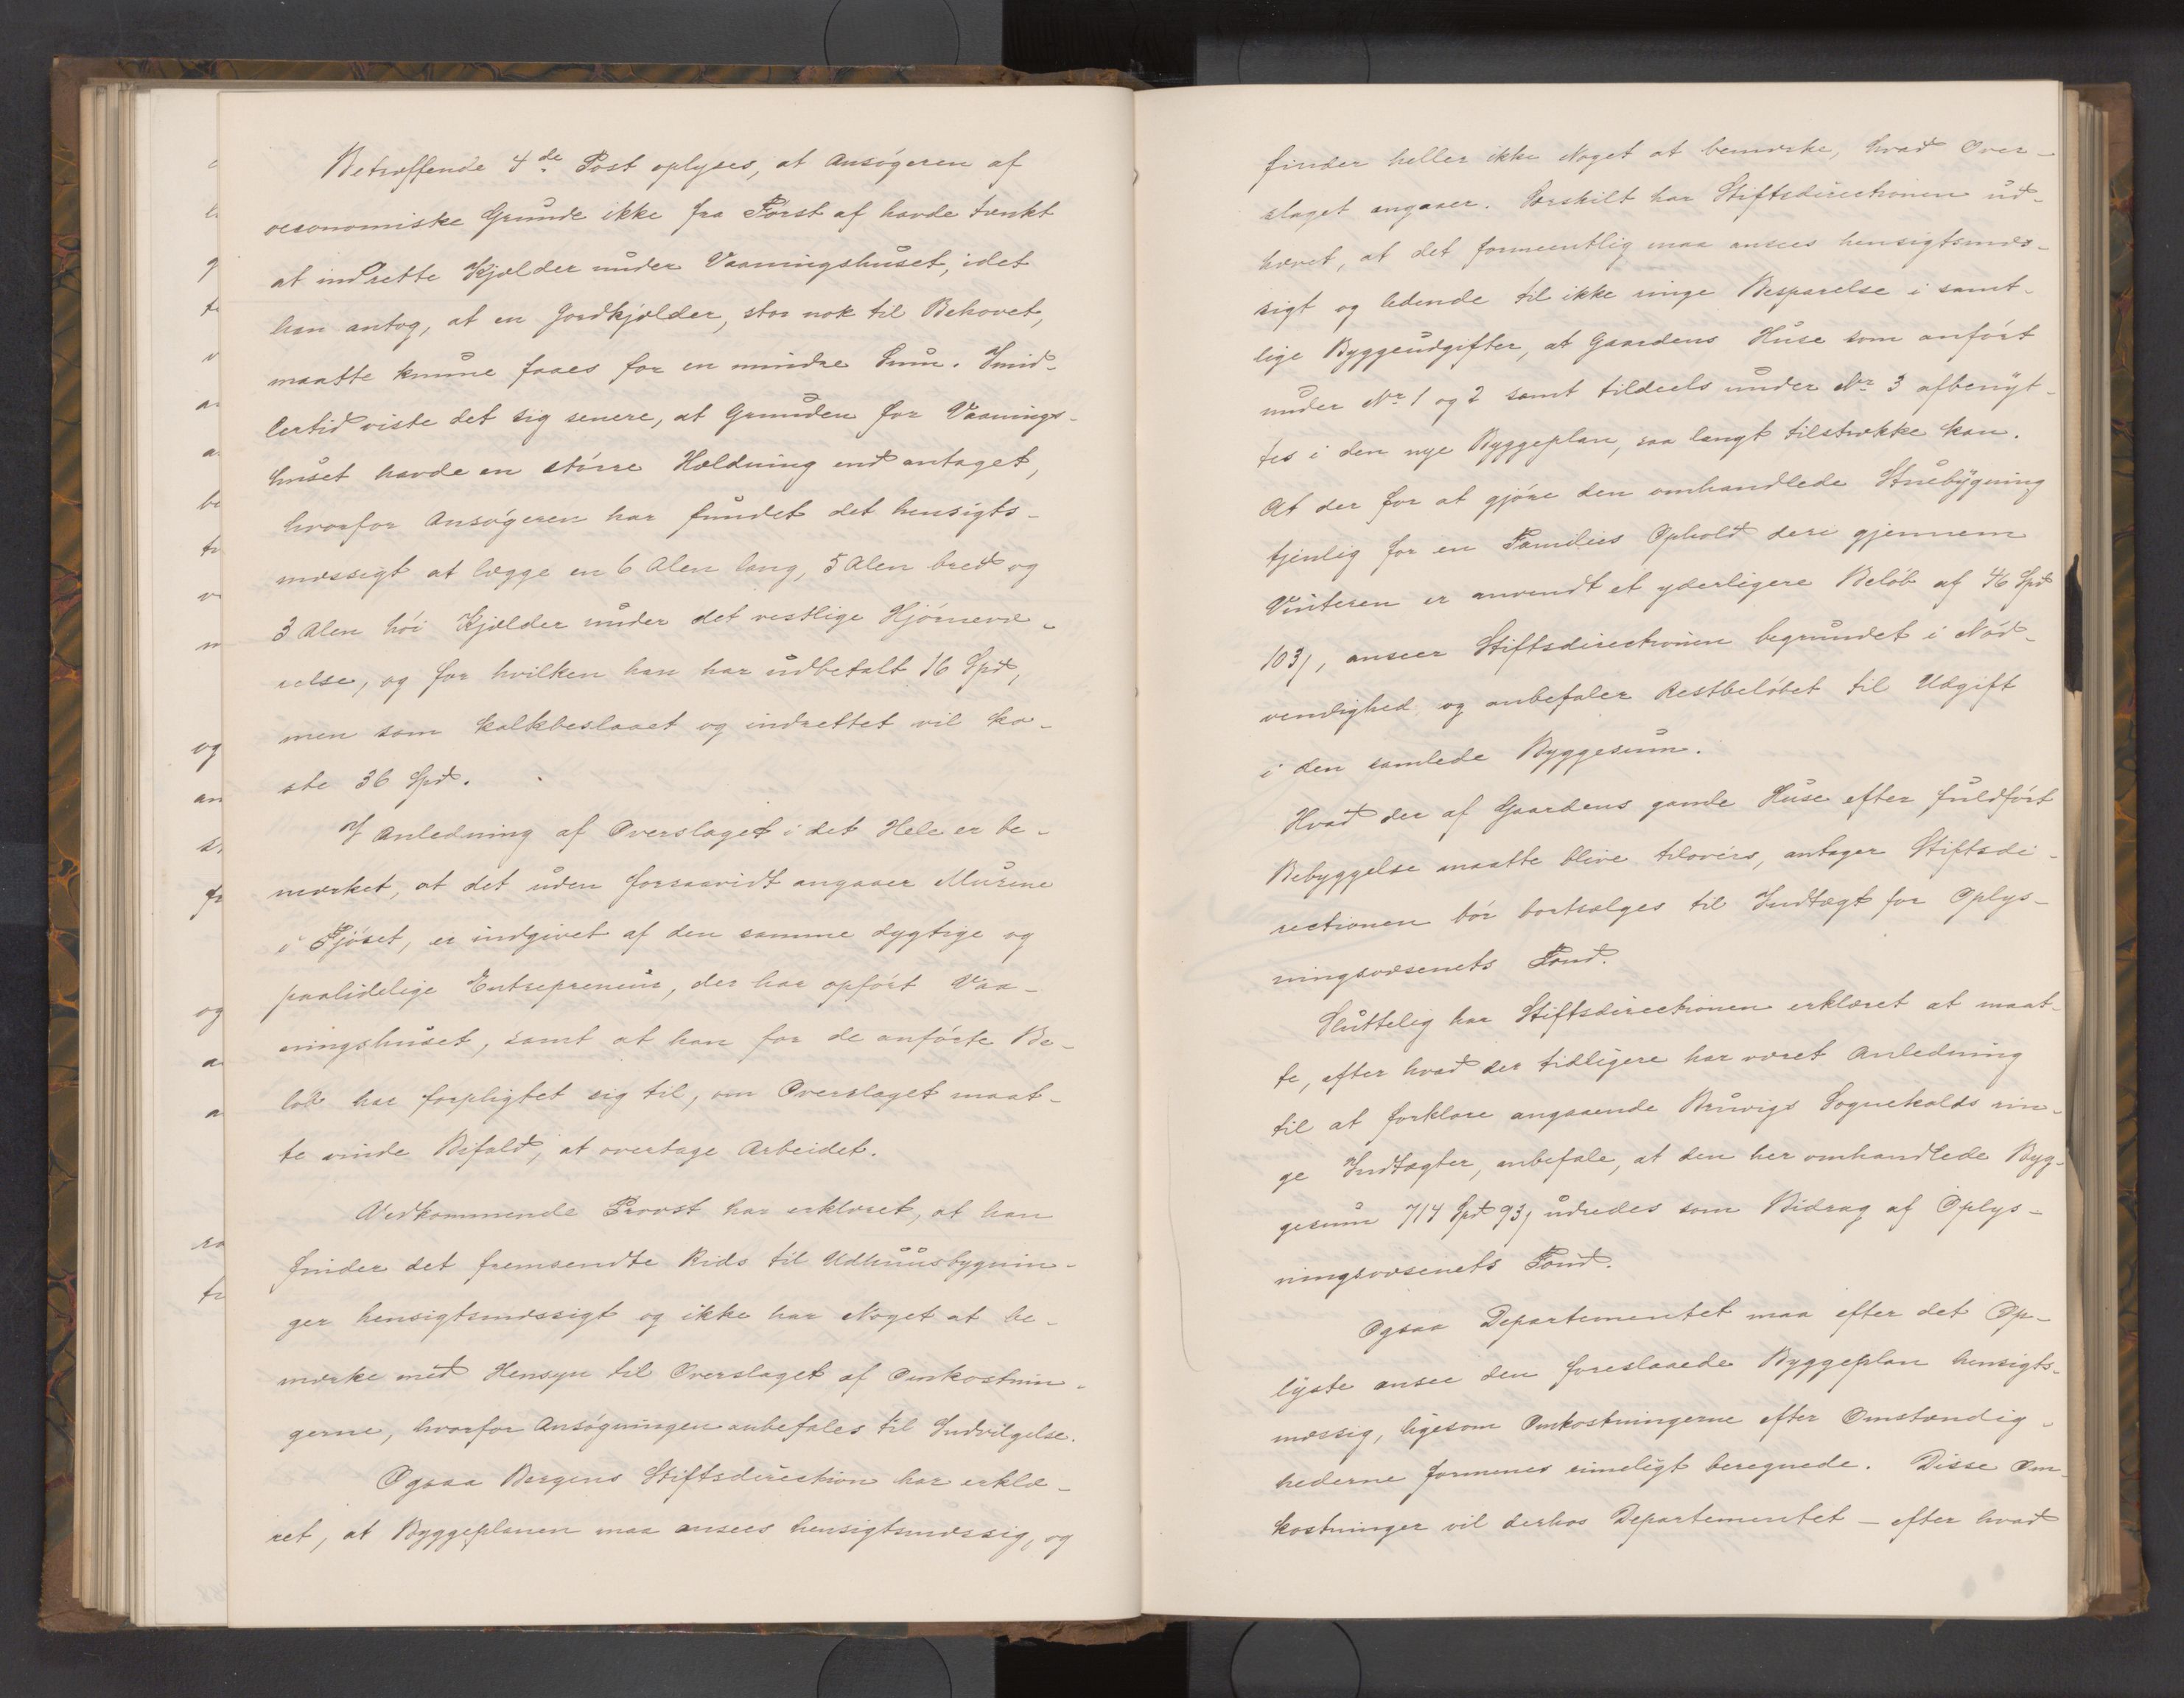 Betræffende 4de Post oplyses, at Ansøgeren af
oeconomiske Grunde ikke fra Først af havde tænkt
at indrette Kjælder under Vaaningshuset, idet
han antog, at en Jordkjælder, stor nok til Behovet,
maatte kunne faaes for en mindre Sum. Imid-
lertid viste det sig senere, at Grunden for Vaanings-
huset havde en større Hældning end antaget,
hvorfor Ansøgeren har fundet det hensigts-
mæssigt at lægge en 6 Alen lang, 5 Alen bred og
3 Alen høi Kjælder under det vestlige Hjørnevæ-
relse, og for hvilken han har udbetalt 16 Spd,
men som kalkbeslaaet og indrettet vil ko-
ste 36 Spd.
I Anledning af Overslaget i det Hele er be-
mærket, at det uden forsaavidt angaaer Murene
i Fjøset, er indgivet af den samme dygtige og
paalidelige Entrepreneur, der har opført Vaa-
ningshuset, samt at han for de anførte Be-
løb har forpligtet sig til, om Overslaget maat-
te vinde Bifald, at overtage Arbeidet.
Vedkommende Provst har erklæret, at han
finder det fremsendte Rids til Udhuusbygnin-
ger hensigtsmæssigt og ikke har Noget at be-
mærke med Hensyn til Overslaget af Omkostnin-
gerne, hvorfor Ansøgningen anbefales til Indvilgelse.
Ogsaa Bergens Stiftsdirection har erklæ-
ret, at Byggeplanen maa ansees hensigtsmæssig, og
finder heller ikke Noget at bemærke, hvad Over-
slaget angaaer. Særskilt har Stiftsdirectionen ud-
hævet, at det formeentlig maa ansees hensigtsmæs-
sigt og ledende til ikke ringe Besparelse i samt-
lige Byggeudgifter, at Gaardens Huse som anført
under Nr 1 og 2 samt tildeels under Nr 3 afbenyt-
tes i den nye Byggeplan, saa langt tilstrække kan.
At der for at gjøre den omhandlede Stuebygning
tjenlig for en Families Ophold deri gjennem
Vinteren er anvendt et yderligere Beløb af 46 Spd
103 ſ, anseer Stiftsdirectionen begrundet i Nød-
vendighed og anbefaler Restbeløbet til Udgift
i den samlede Byggesum.
Hvad der af Gaardens gamle Huse efter fuldført
Bebyggelse maatte blive tilovers, antager Stiftsdi-
rectionen bør bortsælges til Indtægt for Oplys-
ningsvæsenets Fond.
Sluttelig har Stiftsdirectionen erklæret at maat-
te, efter hvad der tidligere har været Anledning
til at forklare angaaende Bruvigs Sognekalds rin-
ge Indtægter, anbefale, at den her omhandlede Byg-
gesum 714 Spd 93 ſ udredes som Bidrag af Oplys-
ningsvæsenets Fond.
Ogsaa Departementet maa efter det Op-
lyste ansee den foreslaaede Byggeplan hensigts-
mæssig, ligesom Omkostningerne efter Omstændig-
hederne formenes rimeligt beregnede. Disse Om-
kostninger vil derhos Departementet – efter hvad